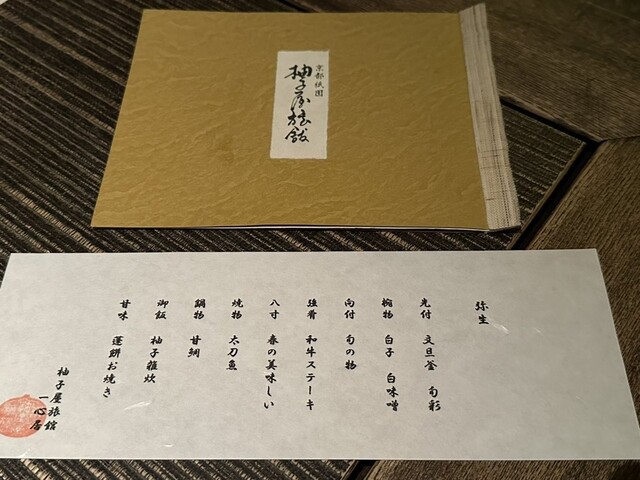 京都祇園
柚子屋旅館
弥生
先付 文旦釜 旬彩
椀物 白子 白味噌
向付 旬の物
強肴 和牛ステーキ
八寸 春の美味しい
焼物 太刀魚
鍋物 甘鯛
御飯 柚子雑炊
甘味 蓬餅お焼き
柚子屋旅館
一心居